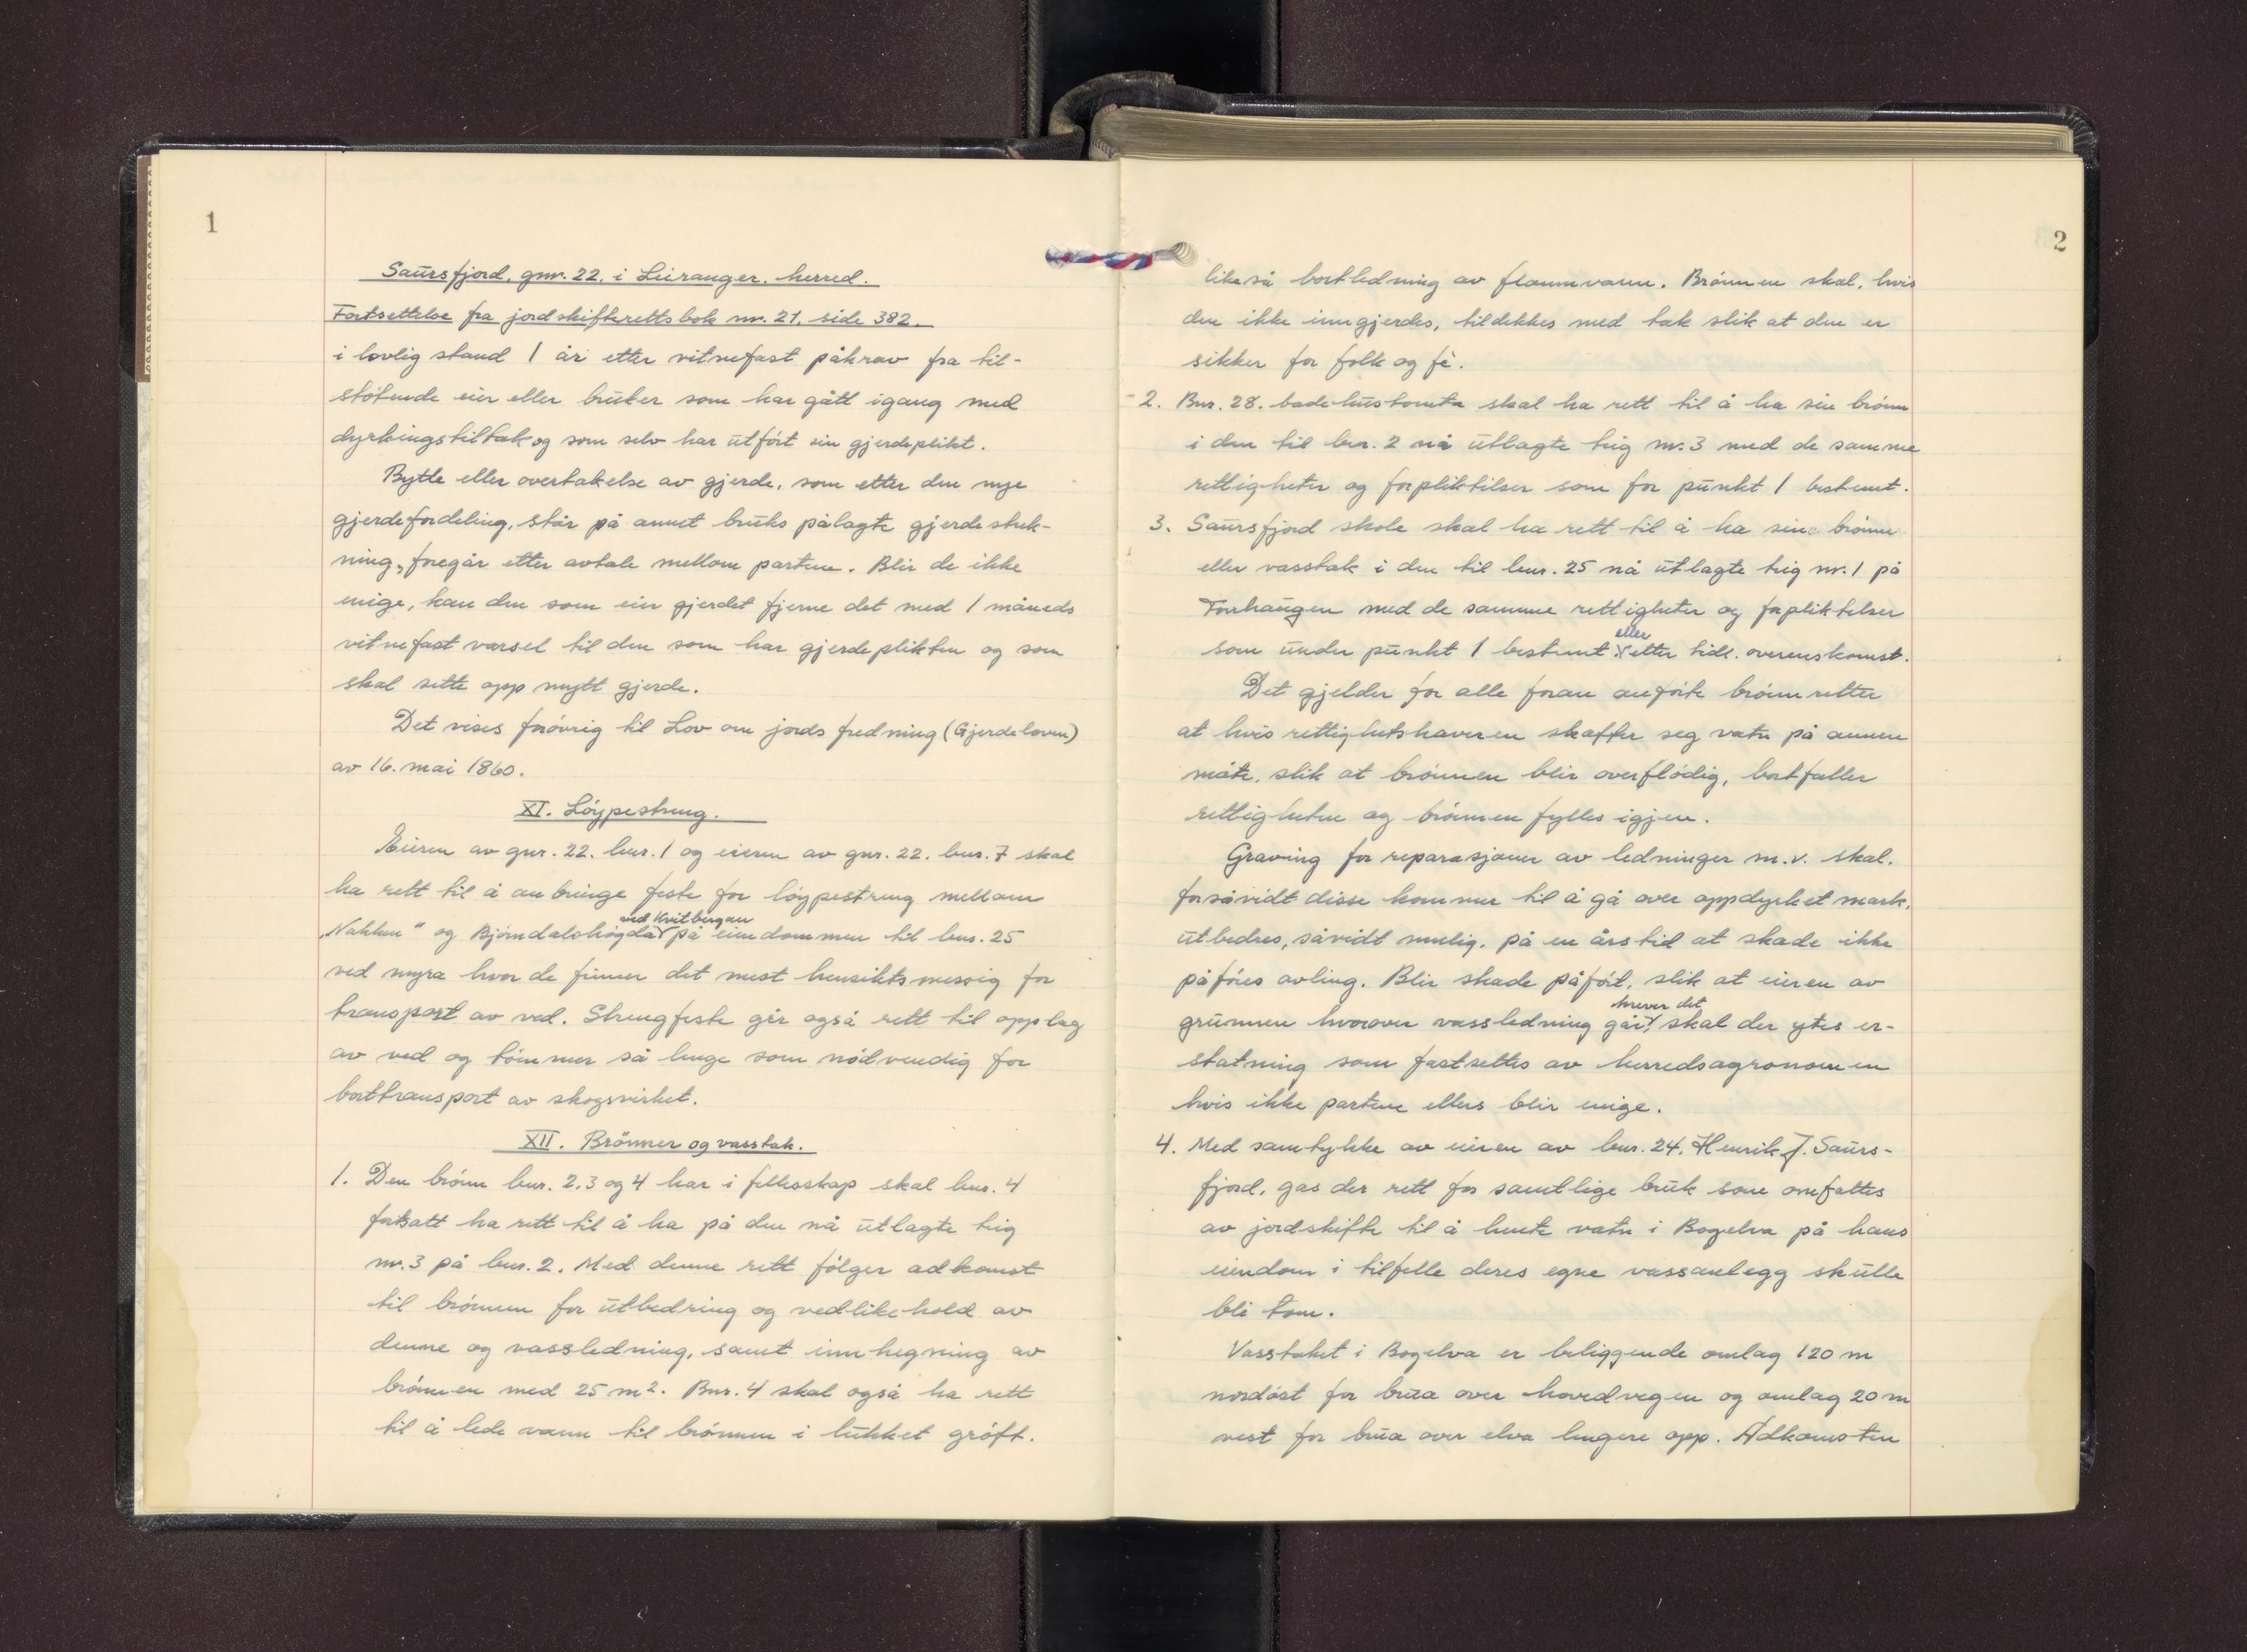 1
Saursfjord, gnr. 22, i Leiranger herred.
Fortsettelse fra jordskifterettsbok nr. 21, side 382.
i lovlig stand 1 år etter vitnefast påkrav fra til-
støtende eier eller bruker som har gått igang med
dyrkingstiltak og som selv har utført sin gjerdeplikt.
Bytte eller overtakelse av gjerde, som etter den nye
gjerdefordeling, står på annet bruks pålagte gjerdestrek-
ning, foregår etter avtale mellom partene. Blir de ikke
enige, kan den som eier gjerdet fjerne det med 1 måneds
vitnefast varsel til den som har gjerdeplikten og som
skal sette opp nytt gjerde.
Det vises forøvrig til Lov om jords fredning (Gjerdeloven)
av 16. mai 1860.
XI. Løypestreng.
Eieren av gnr. 22. bnr. 1 og eieren av gnr. 22. bnr. 7 skal
ha rett til å anbringe feste for løypestreng mellom
ved Kvitbergan
"Nakken" og Bjørndalshøgda på eiendommen til bnr. 25
ved myra hvor de finner det mest hensiktsmessig for
transport av ved. Strengfeste gir også rett til opplag
av ved og tømmer så lenge som nødvendig for
borttransport av skogsvirket.
XII. Brønner og vasstak.
1. Den brønn bnr. 2, 3 og 4 har i fellesskap skal bnr. 4
fortsatt ha rett til å ha på den nå utlagte teig
nr. 3 på bnr. 2. Med denne rett følger adkomst
til brønnen for utbedring og vedlikehold av
denne og vassledning, samt innhegning av
brønnen med 25 m². Bnr. 4 skal også ha rett
til å lede vann til brønnen i lukket grøft.
2
likeså bortledning av flomvann. Brønnen skal, hvis
den ikke inngjerdes, tildekkes med tak slik at den er
sikker for folk og fè.
2. Bnr. 28. badehustomta skal ha rett til å ha sin brønn
i den til bnr. 2 nå utlagte teig nr. 3 med de samme
rettigheter og forpliktelser som for punkt 1 bestemt.
3. Saursfjord skole skal ha rett til å ha sin brønn
eller vasstak i den til bnr. 25 nå utlagte teig nr. 1 på
Torrhaugen med de samme rettigheter og forpliktelser
eller
som under punkt 1 bestemt etter tidl. overenskomst.
Det gjelder for alle foran anførte brønnretter
at hvis rettighetshaveren skaffer seg vatn på annen
måte, slik at brønnen blir overflødig, bortfaller
rettigheten og brønnen fylles igjen.
Graving for reparasjoner av ledninger m.v. skal,
forsåvidt disse kommer til å gå over oppdyrket mark,
utbedres, såvidt mulig, på en årstid at skade ikke
påføres avling. Blir skade påført, slik at eieren av
krever det
grunnen hvorover vassledning går, skal der ytes er-
statning som fastsettes av herredsagronomen
hvis ikke partene ellers blir enige.
4. Med samtykke av eieren av bnr. 24, Henrik J. Saurs-
fjord, gas der rett for samtlige bruk som omfattes
av jordskifte til å hente vatn i Bogelva på hans
eiendom i tilfelle deres egne vassanlegg skulle
bli tom.
Vasstaket i Bogelva er beliggende omlag 120 m
nordøst for brua over hovedvegen og omlag 20 m
vest for brua over elva lengere opp. Adkomsten